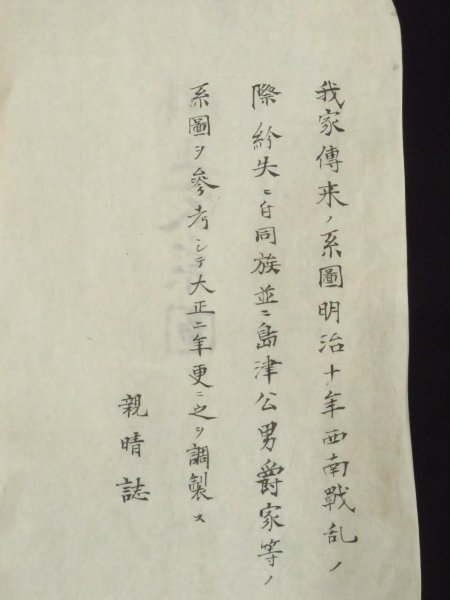 我家傳来ノ系圖明治十年西南戰乱ノ
際紛失ニ付同族並ニ島津公男爵家等ノ
系圖ヲ參考シテ大正二年更ニ之ヲ調製ス
親晴誌